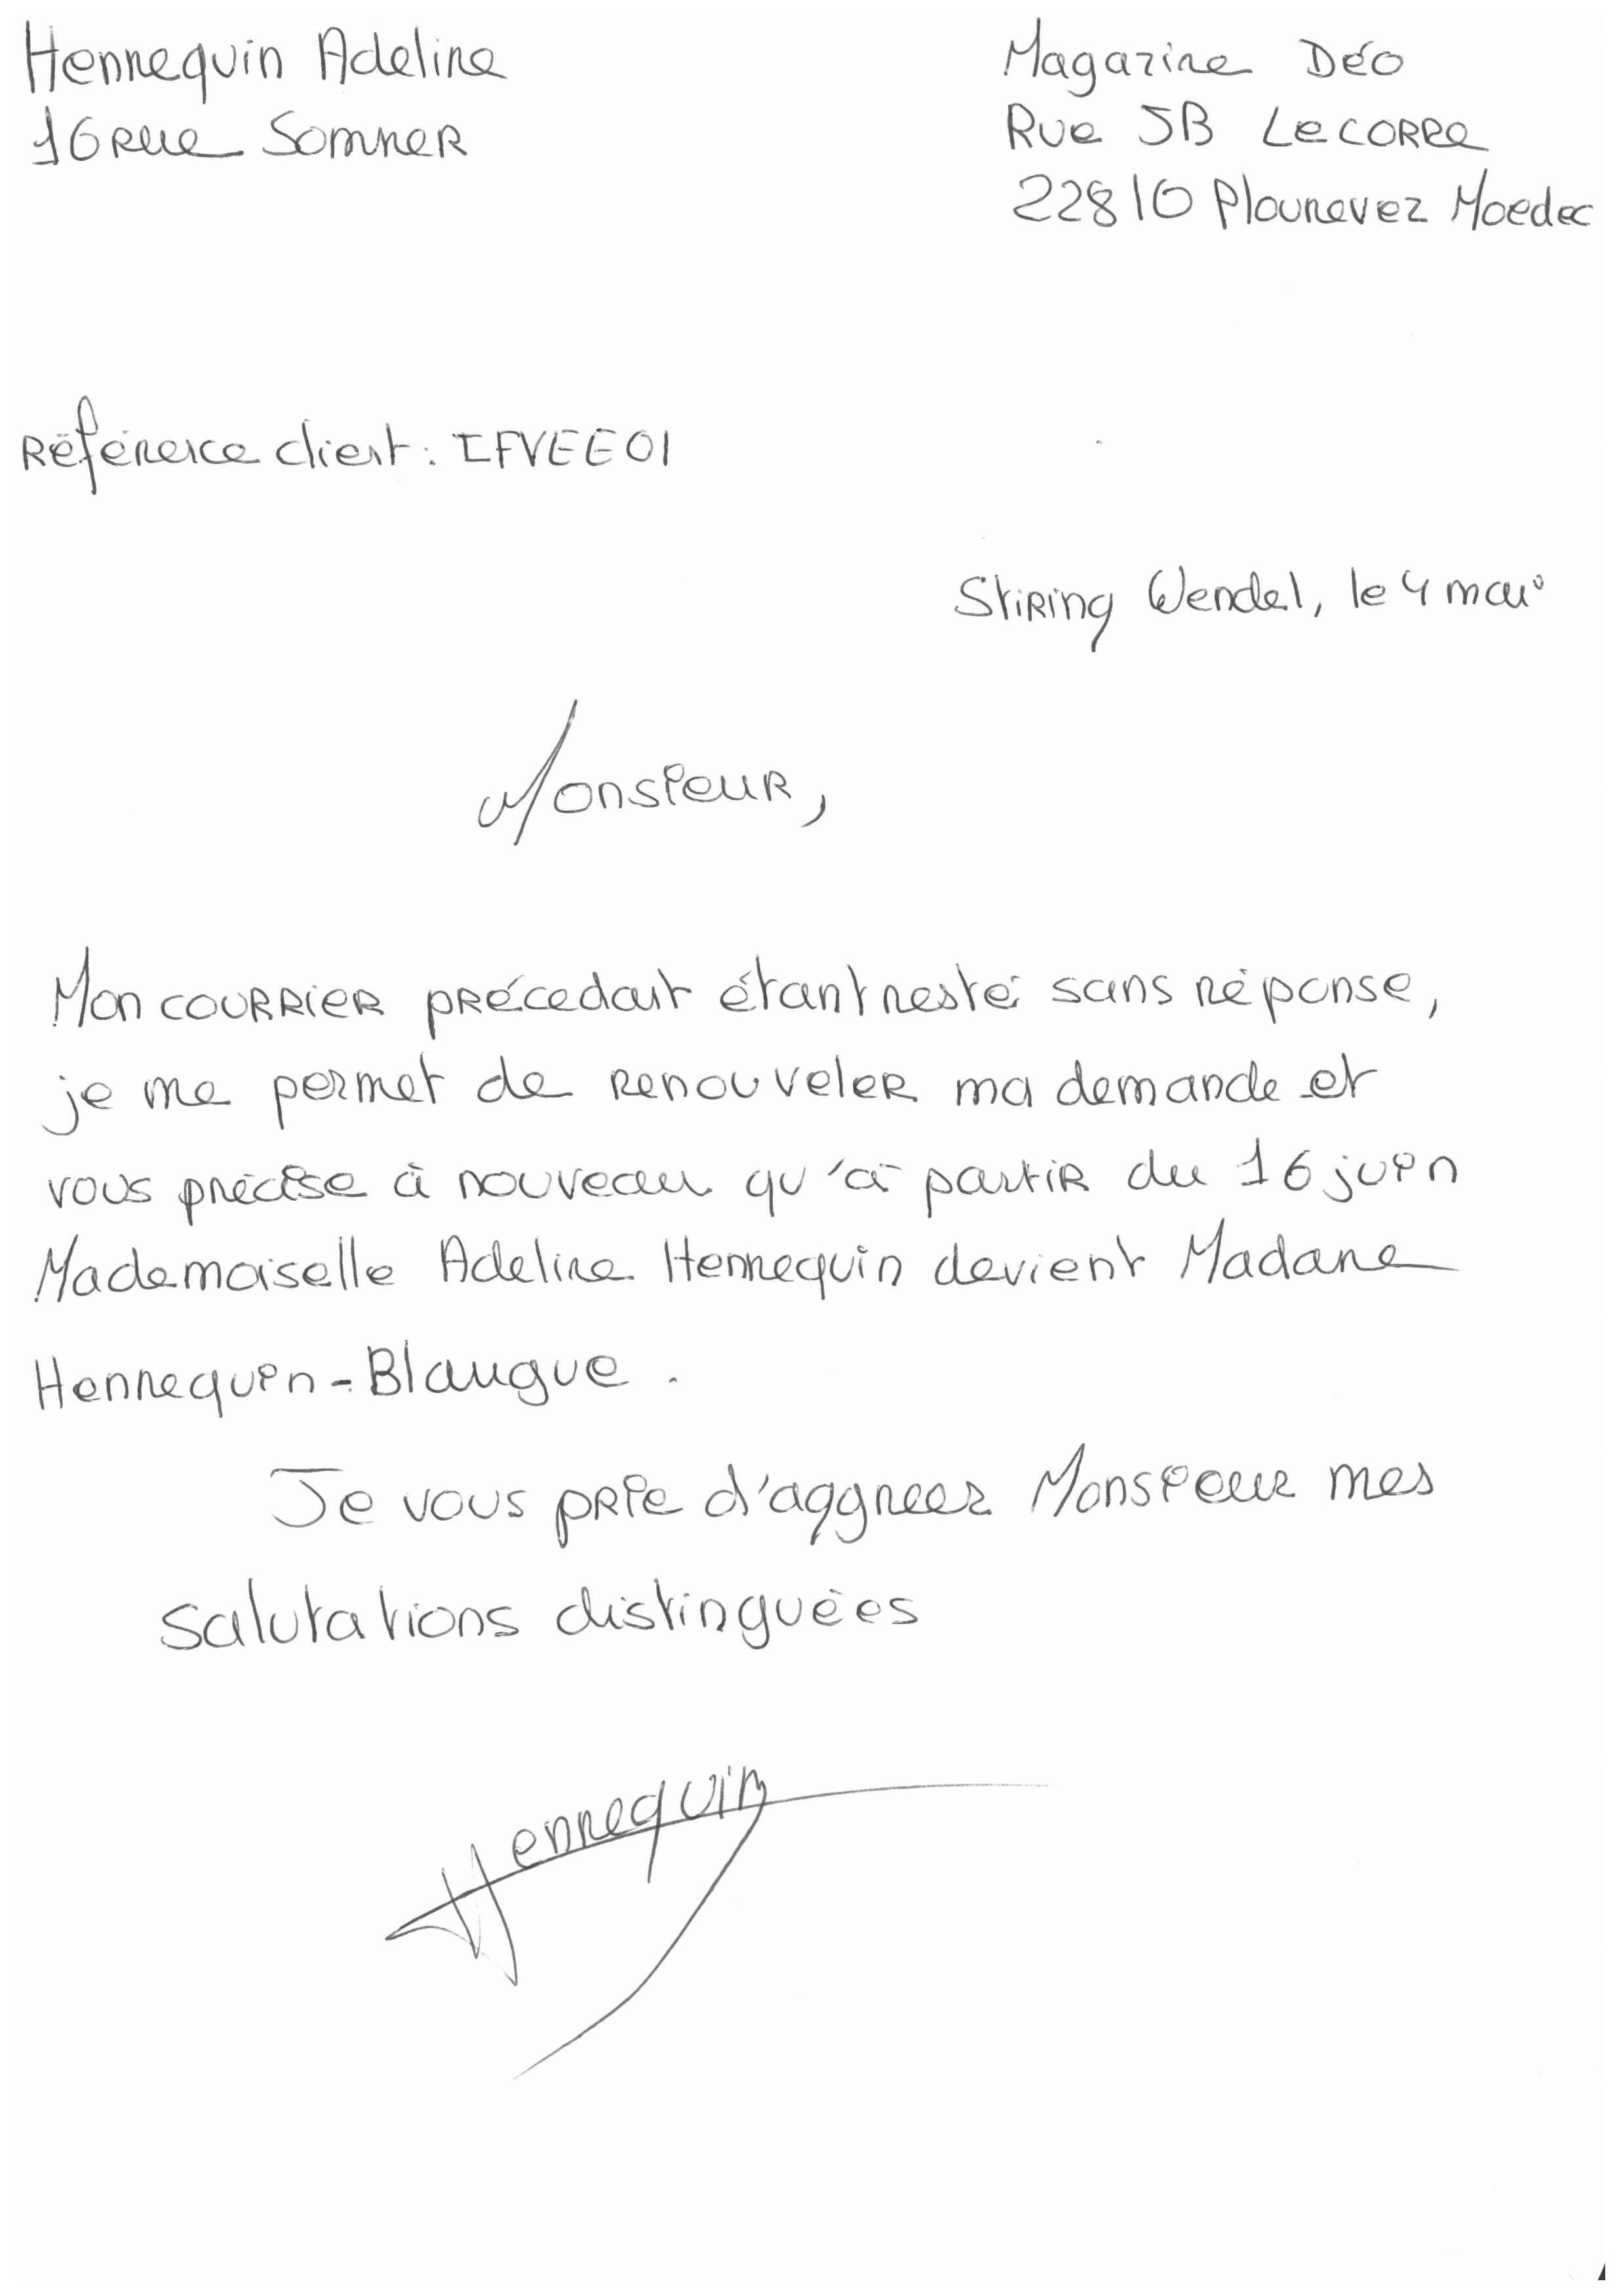 Hennequin Adeline
16 rue Sommer
Magazine Déo
Rue JB Lecorre
22810 Plounevez Moedec
Référence client : IFVEE01
Stiring Wendel, le 4 mai
Monsieur,
Mon courrier précedant étant resté sans réponse,
je me permet de renouveler ma demande et
vous précise à nouveau qu'à partir du 16 juin
Mademoiselle Adeline Hennequin devient Madame
Hennequin-Blaugue.
Je vous prie d'aggreer Monsieur mes
salutations distinguées
Hennequin